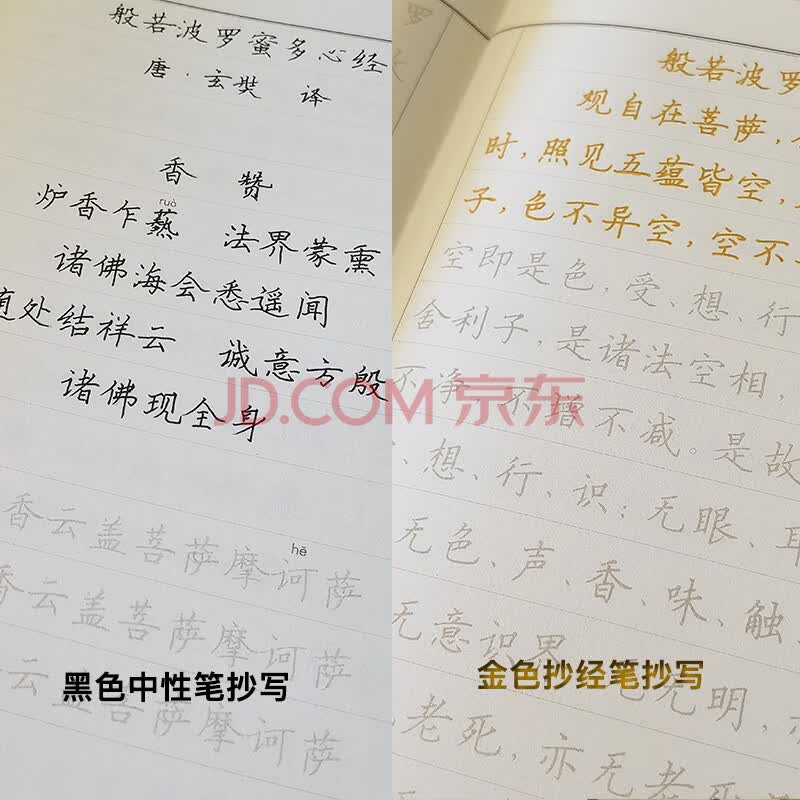 般若波罗蜜多心经
唐·玄奘 译
香 赞
ruò
炉香乍爇 法界蒙熏
诸佛海会悉遥闻
随处结祥云 诚意方殷
诸佛现全身
hē
香云盖菩萨摩诃萨
香云盖菩萨摩诃萨
云盖菩萨摩诃萨
黑色中性笔抄写
般若波罗
观自在菩萨，
时，照见五蕴皆空，
子，色不异空，空不
空即是色，受、想、行
舍利子，是诸法空相，
不净，不增不减。是故
、想、行、识；无眼、耳
无色、声、香、味、触
无意识界
无明，亦
老死，亦无老死
金色抄经笔抄写
JD.COM 京东